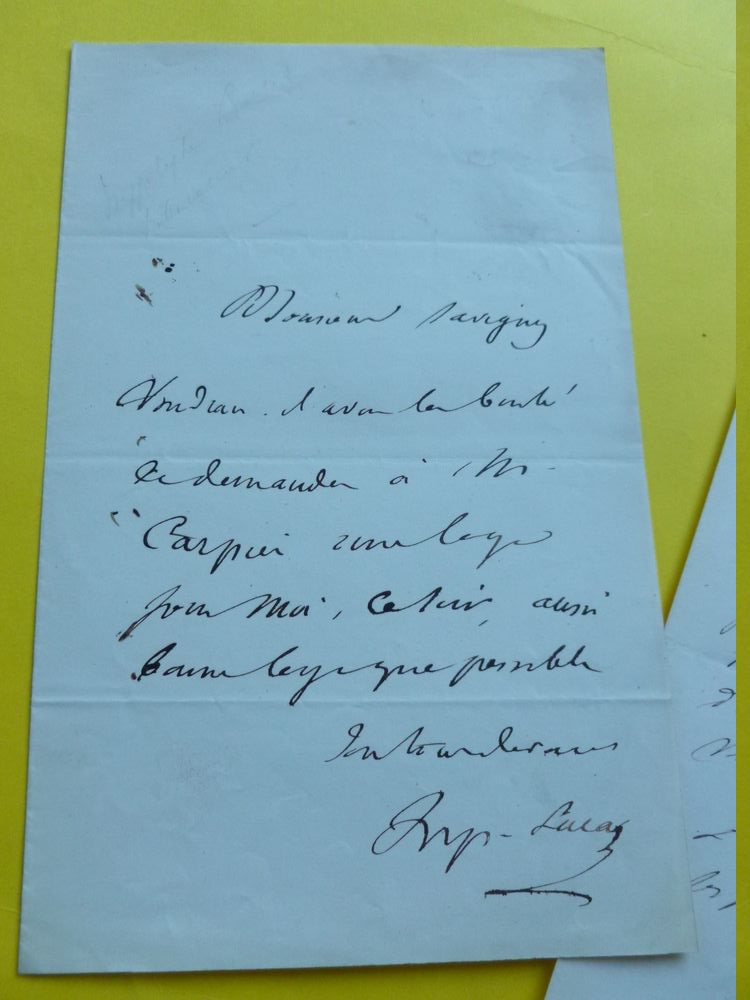 Monsieur Savigny
Voudrait-il avoir la bonté
de demander à M.
Carpier une loge
pour moi, ce soir, aussi
bonne loge que possible
Hip. Lucas